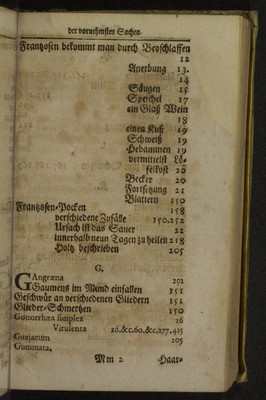 der vornehmsten Sachen.
Frantzosen bekommt man durch Beyschlaffen
12
Anerbung 13.
14
Säugen 15
Speichel 17
ein Glaß Wein
18
einen Kuß 19
Schweiß 19
Hebammen 19
vermittelst Lö-
felkost 20
Becker 20
Fortsetzung 21
Blattern 150
Frantzosen-Pocken 158
verschiedene Zufälle 150.252
Ursach ist das Sauer 22
innerhalb neun Tagen zu heilen 218
Holtz beschrieben 205
G.
GAngræna 292
Gaumens im Mund einfallen 151
Geschwür an verschiedenen Gliedern 151
Glieder-Schmertzen 150
Gonoerhæa simplex 16
Virulenta 26.&c.60.&c.277.415
Guajacum 205
Gummata,
Mm 2 Haar-